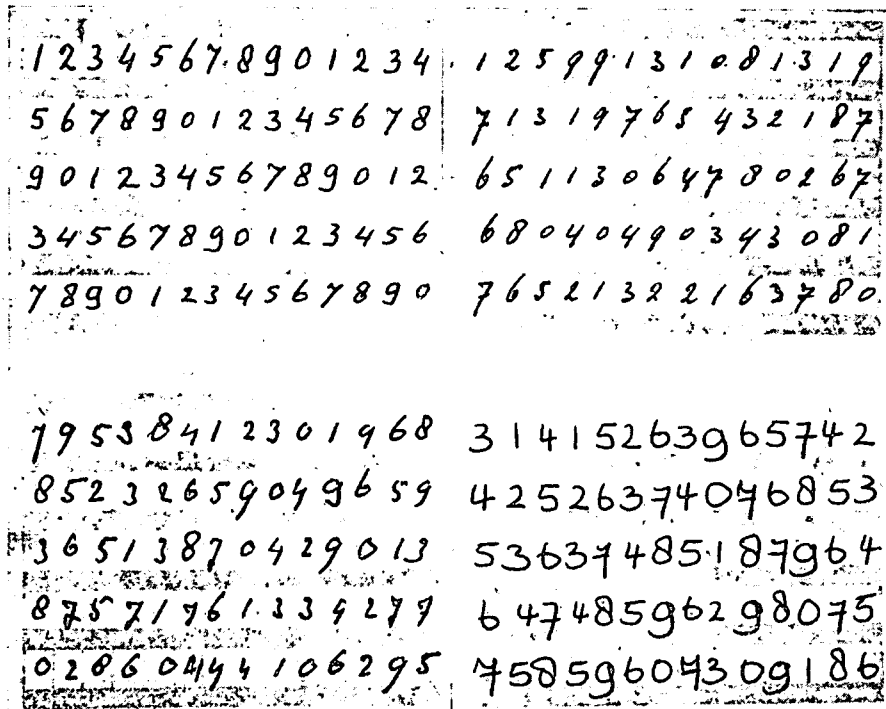 1 2 3 4 5 6 7 8 9 0 1 2 3 4
5 6 7 8 9 0 1 2 3 4 5 6 7 8
9 0 1 2 3 4 5 6 7 8 9 0 1 2
3 4 5 6 7 8 9 0 1 2 3 4 5 6
7 8 9 0 1 2 3 4 5 6 7 8 9 0
1 2 5 9 9 1 3 1 0 8 1 3 1 9
7 1 3 1 9 7 6 5 4 3 2 1 8 7
6 5 1 1 3 0 6 4 7 8 0 2 6 7
6 8 0 4 0 4 9 0 3 4 3 0 8 1
7 6 5 2 1 3 2 2 1 6 3 7 8 0
7 9 5 3 8 4 1 2 3 0 1 9 6 8
8 5 2 3 2 6 5 9 0 4 9 6 5 9
3 6 5 1 3 8 7 0 4 2 9 0 1 3
8 7 5 7 1 7 6 1 3 3 9 2 7 7
0 2 8 6 0 4 4 4 1 0 6 2 9 5
3 1 4 1 5 2 6 3 9 6 5 7 4 2
4 2 5 2 6 3 7 4 0 7 6 8 5 3
5 3 6 3 7 4 8 5 1 8 7 9 6 4
6 4 7 4 8 5 9 6 2 9 8 0 7 5
7 5 8 5 9 6 0 7 3 0 9 1 8 6